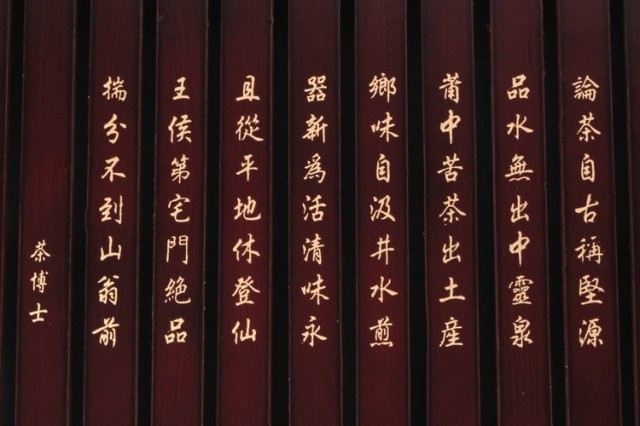 論茶自古稱壑源
品水無出中靈泉
莆中苦茶出土産
鄉味自汲井水煎
器新為活清味永
且從平地休登仙
王侯第宅門絕品
揣分不到山翁前
茶博士